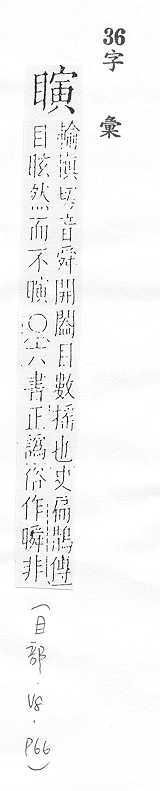 36
字彙
瞚
輸切音舜開闔目數搖也史扁鵲傳
目眩然而不瞚〇六書正譌俗作瞬非
(目部.V8.P66)